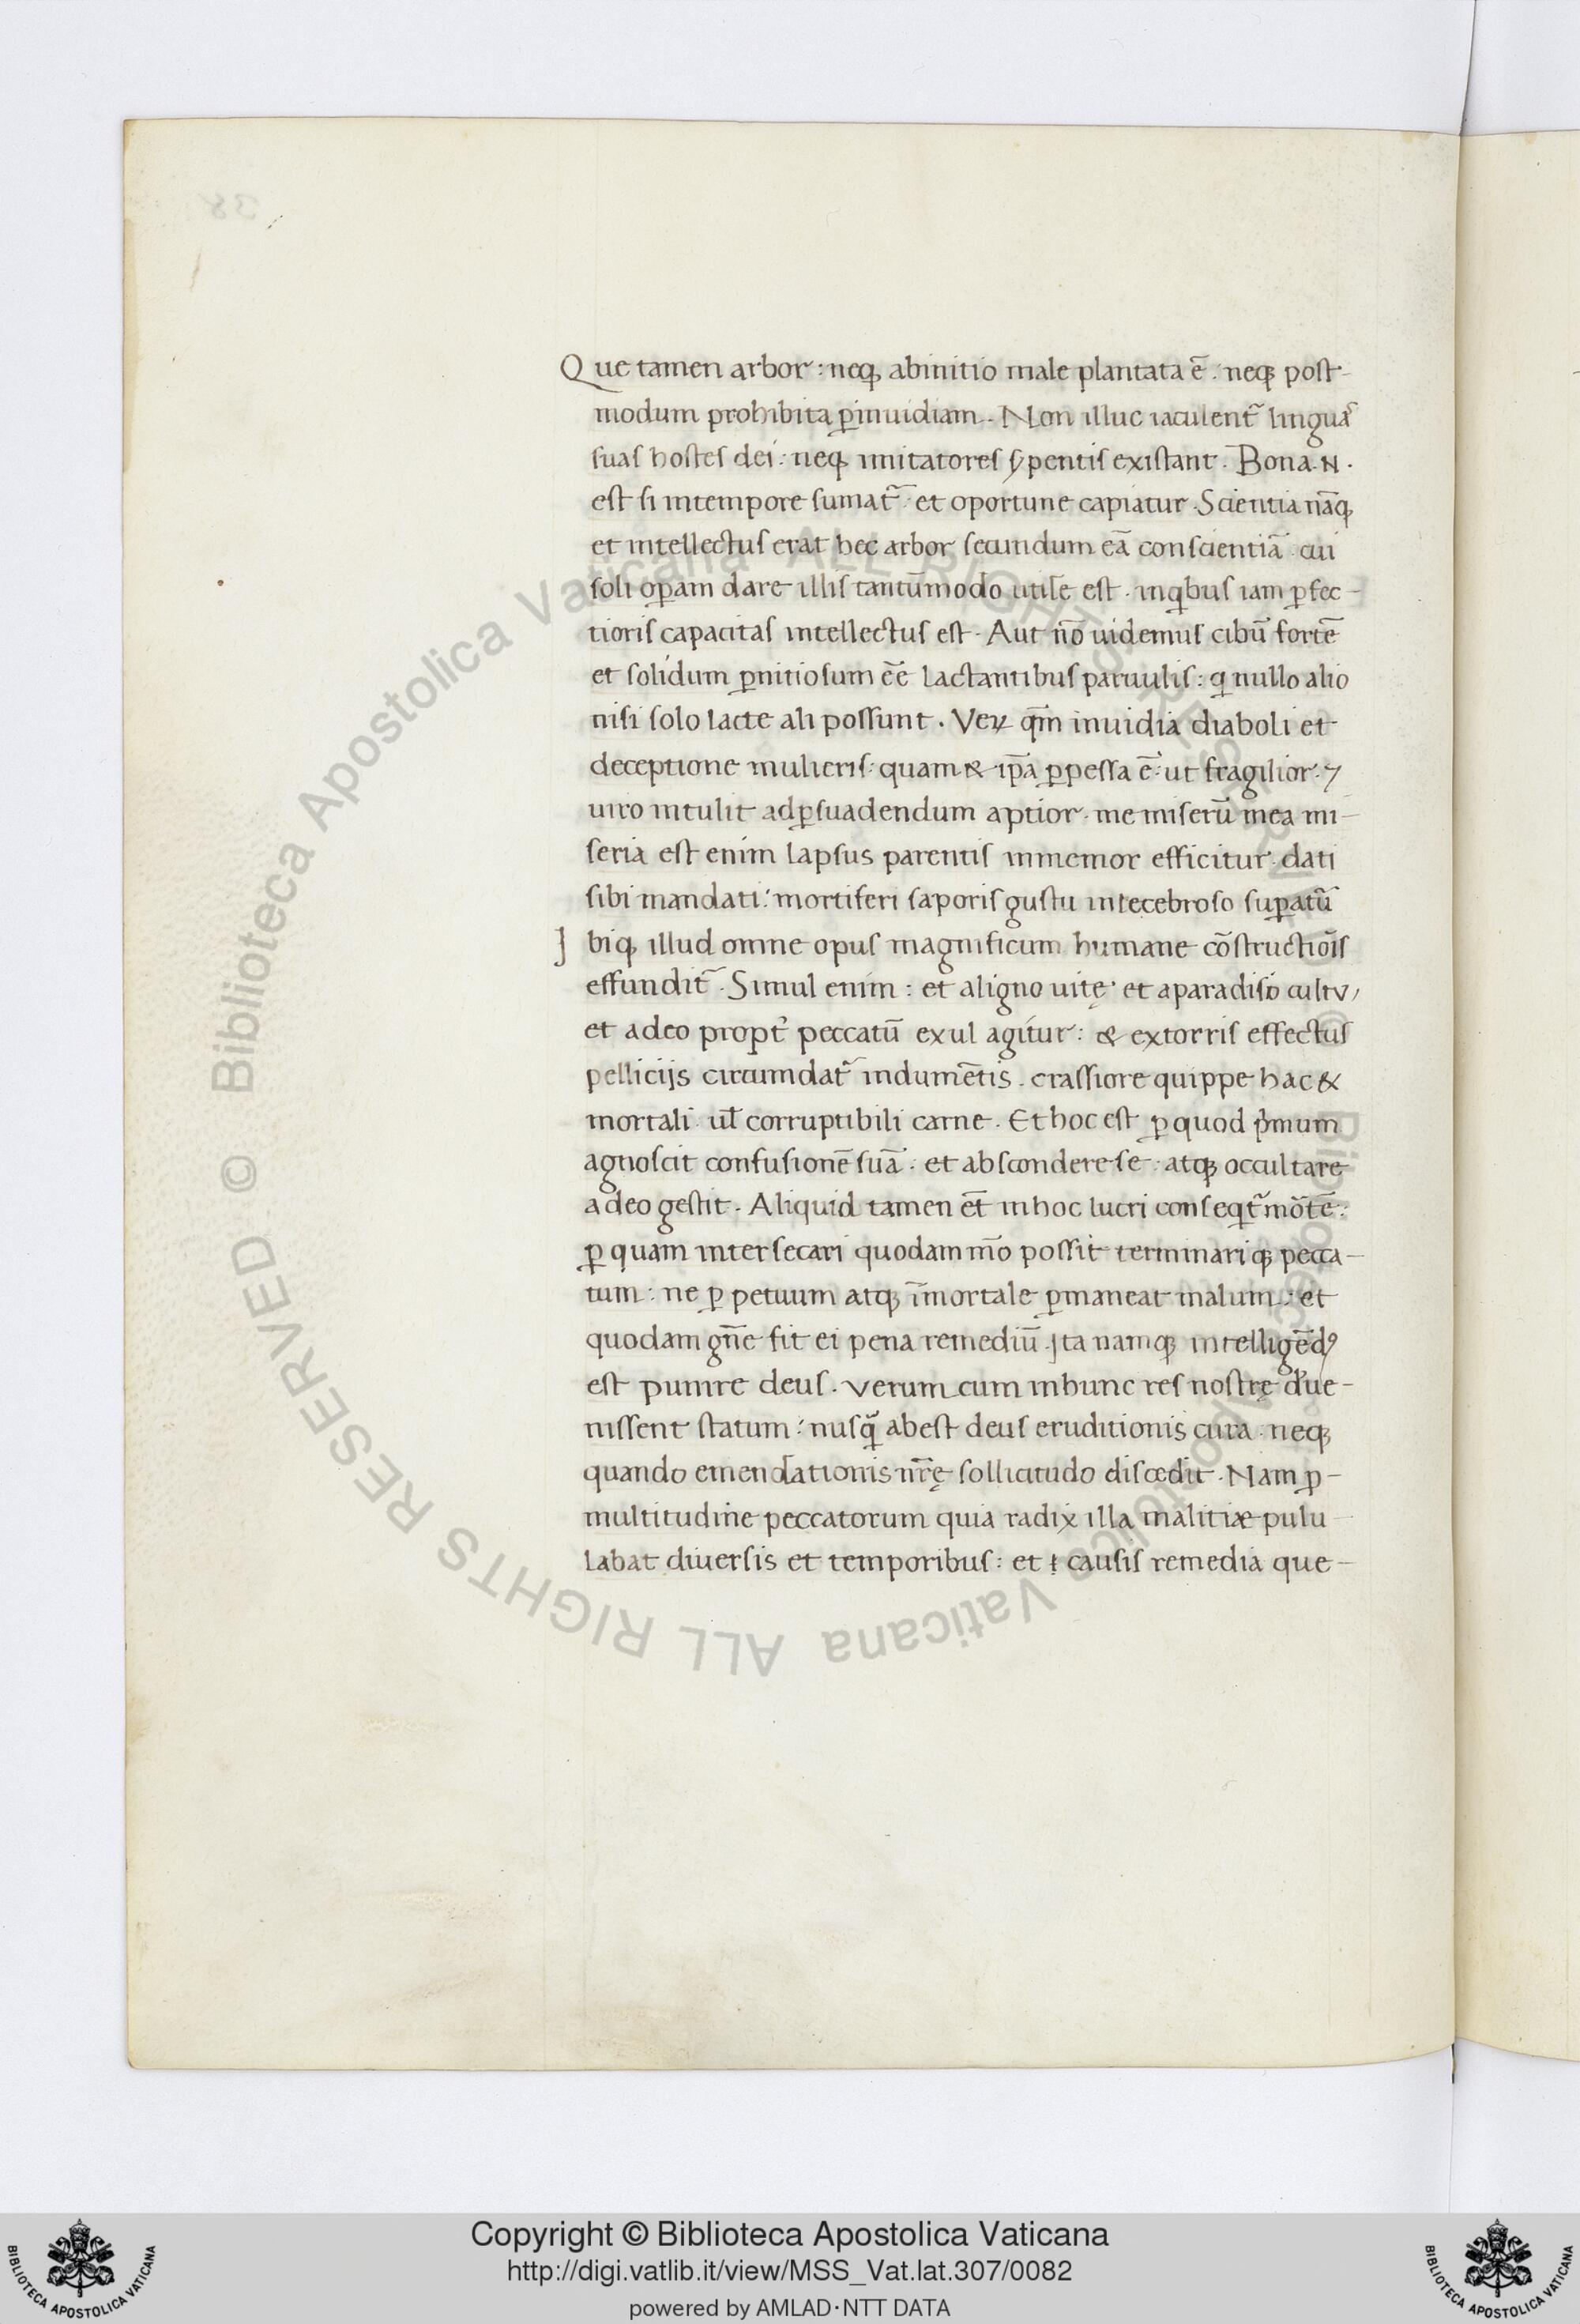 Que tamen arbor : neqꝫ abinitio male plantata ē . neqꝫ post-
modum prohibita ꝑinuidiam . Non illuc iaculent᷑ lingua᷒
suas hostes dei : neqꝫ imitatores ẜpentis existant . Bona . N .
est si intempore sumat᷑ . et oportune capiatur . Scientia nāqꝫ
et intellectus erat hec arbor secundum eā conscientiā . cui
soli oꝑam dare illis tantūmodo utile est . inqͥbus iam ꝑfec-
tioris capacitas intellectus est . Aut nō uidemus cibū fortē
et solidum ꝑnitiosum eē lactantibus paruulis : qͥ nullo alio
nisi solo lacte ali possunt . Veꝝ qm̄ inuidia diaboli et
deceptione mulieris : quam & ip̄a ꝑpessa ē : ut fragilior : ⁊
uiro intulit adꝑsuadendum aptior . me miserū mea mi-
seria est enim lapsus parentis inmemor efficitur dati
sibi mandati : mortiferi saporis gustu inlecebroso suꝑatū
Ibiqꝫ illud omne opus magnificum humane cōstructiōis
effundit᷑ . Simul enim : et aligno uitę et aparadisio cultu /
et adeo propt̉ peccatū exul agitur : & extorris effectus
pellicijs circumdat᷑ indumētis . crassiore quippe hac &
mortali ul̄ corruptibili carne . Et hoc est ꝑ quod pͥmum
agnoscit confusionē suā . et abscondere se : atqꝫ occultare
adeo gestit . Aliquid tamen et̄ inhoc lucri conseqͥt᷑ mōtē :
ꝑ quam intersecari quodam mō possit terminariqꝫ pecca-
tum : ne ꝑpetuum atqꝫ īmortale ꝑmaneat malum : et
quodam gn̄e fit ei pena remediū . Jta namqꝫ intelligēdꝰ
est punire deus . Verum cum inhunc res nostrę d̓ue-
nissent statum : nusqᷓ abest deus eruditionis cura . neqꝫ
quando emendationis nr̄ę sollicitudo discedit . Nam ꝑ-
multitudine peccatorum quia radix illa malitiæ pulu-
labat diuersis et temporibus : et causis remedia que-
Copyright © Biblioteca Apostolica Vaticana
http://digi.vatlib.it/view/MSS_Vat.lat.307/0082
powered by AMLAD·NTT DATA
BIBLIOTECA APOSTOLICA VATICANA
BIBLIOTECA APOSTOLICA VATICANA
© Biblioteca Apostolica Vaticana ALL RIGHTS RESERVED © Biblioteca Apostolica Vaticana ALL RIGHTS RESERVED